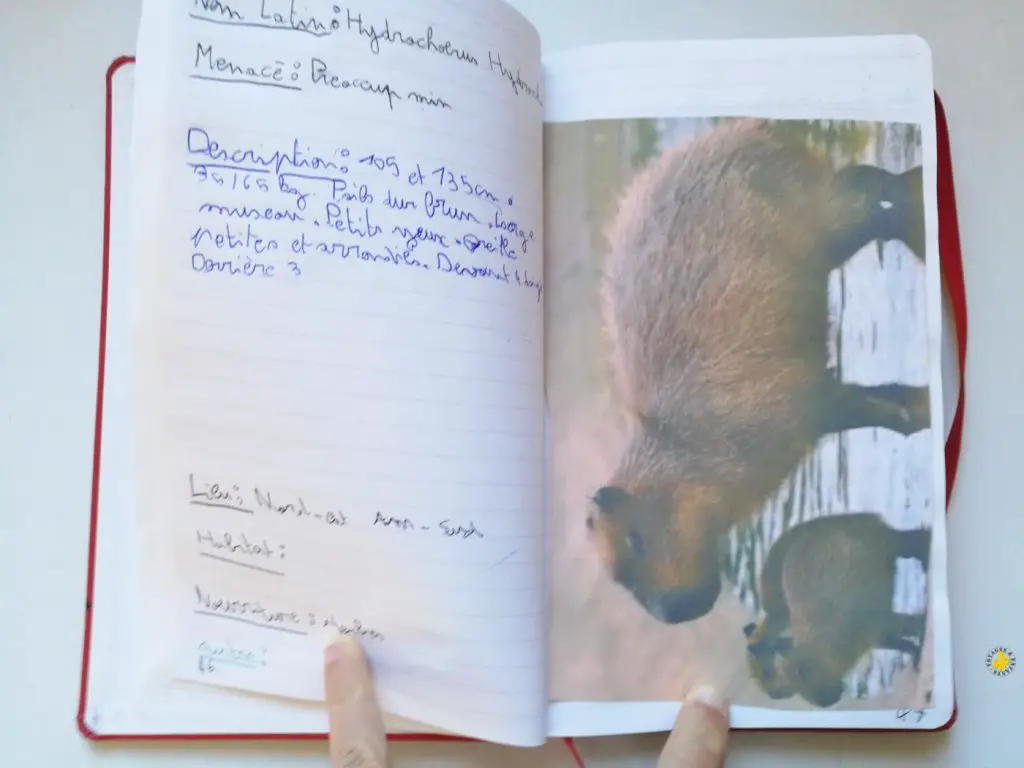 Nom Latin: Hydrochoerus Hydroch
Menacé: Préoccup min
Description: 105 et 135cm.
35/65 kg. Poils dur brun. Large
museau. Petits yeux. Oreille
petites et arrondies. Devant 4
Arrière 3
Lieu: Nord-est Am-Sud
Habitat:
Nourriture:
Autre:
VOYAGES &
ENFANTS